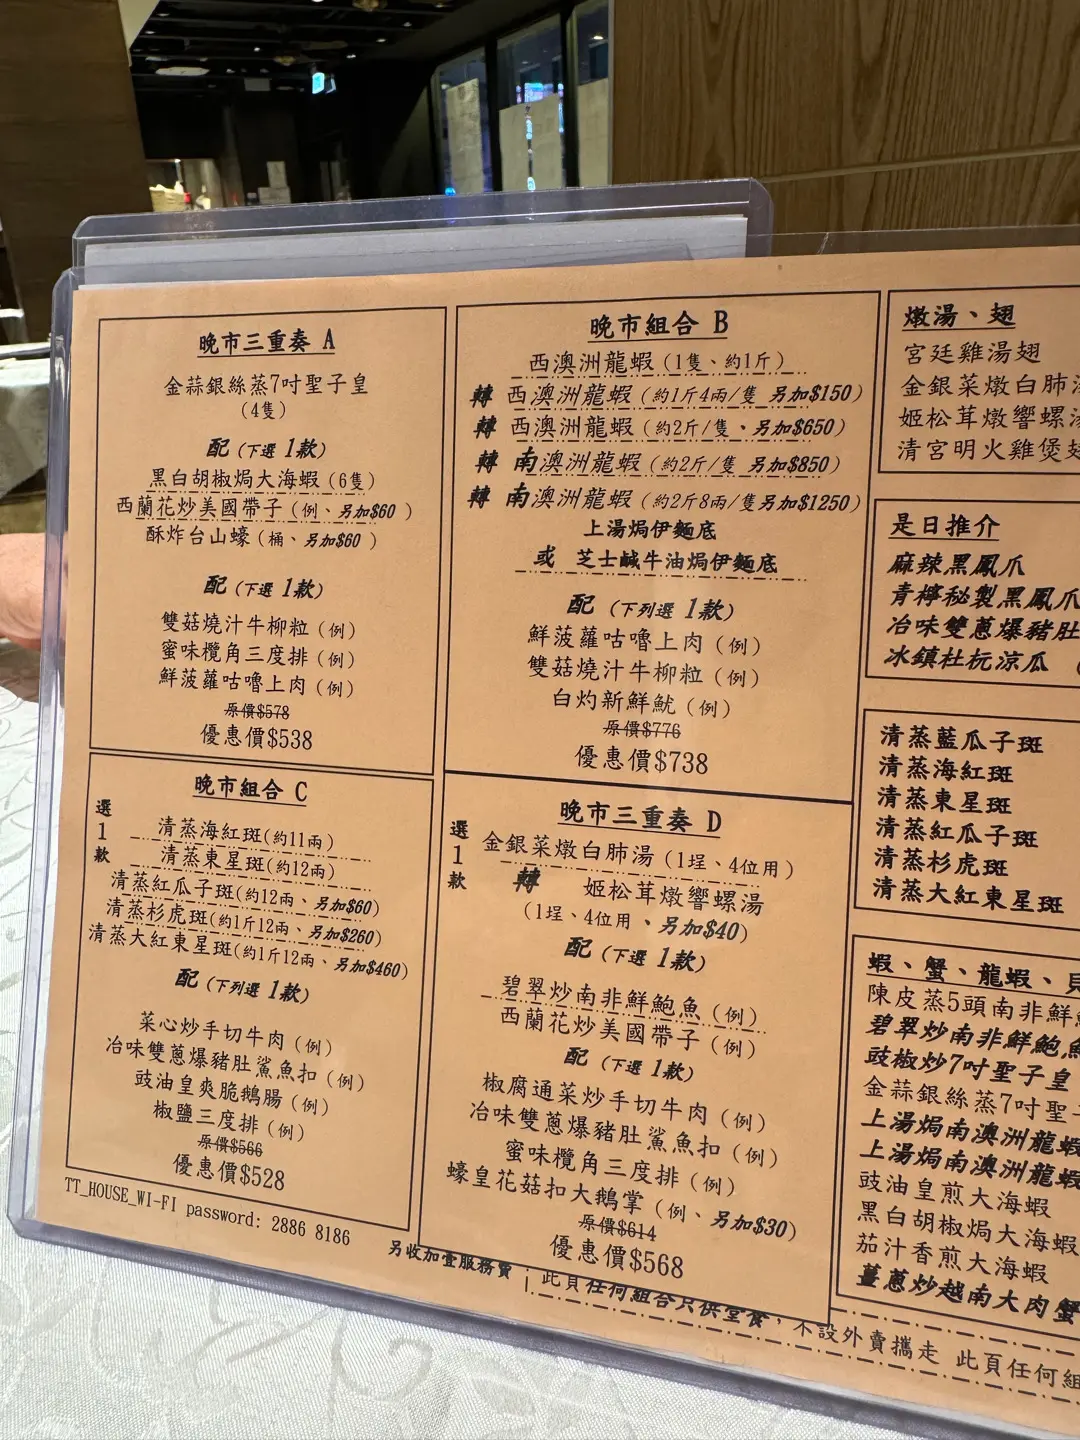 晚市三重奏 A
金蒜銀絲蒸7吋聖子皇
(4隻)
配 (下選 1款)
黑白胡椒焗大海蝦 (6隻)
西蘭花炒美國帶子 (例、另加$60 )
酥炸台山蠔 (桶、另加$60 )
配 (下選 1款)
雙菇燒汁牛柳粒 (例)
蜜味欖角三度排 (例)
鮮菠蘿咕嚕上肉 (例)
原價$578
優惠價$538
晚市組合 B
西澳洲龍蝦 (1隻、約1斤)
轉 西澳洲龍蝦 (約1斤4兩/隻 另加$150)
轉 西澳洲龍蝦 (約2斤/隻、另加$650)
轉 南澳洲龍蝦 (約2斤/隻 另加$850)
轉 南澳洲龍蝦 (約2斤8兩/隻另加$1250)
上湯焗伊麵底
或 芝士鹹牛油焗伊麵底
配 (下列選 1款)
鮮菠蘿咕嚕上肉 (例)
雙菇燒汁牛柳粒 (例)
白灼新鮮魷 (例)
原價$776
優惠價$738
晚市組合 C
選1款
清蒸海紅斑(約11兩)
清蒸東星斑(約12兩)
清蒸紅瓜子斑(約12兩、另加$60)
清蒸杉虎斑(約1斤12兩、另加$260)
清蒸大紅東星斑(約1斤12兩、另加$460)
配 (下列選 1款)
菜心炒手切牛肉 (例)
冶味雙蔥爆豬肚鯊魚扣 (例)
豉油皇爽脆鵝腸 (例)
椒鹽三度排 (例)
原價$566
優惠價$528
晚市三重奏 D
選1款
金銀菜燉白肺湯 (1埕、4位用)
轉 姬松茸燉響螺湯
(1埕、4位用、另加$40)
配 (下選 1款)
碧翠炒南非鮮鮑魚 (例)
西蘭花炒美國帶子 (例)
配 (下選 1款)
椒腐通菜炒手切牛肉 (例)
冶味雙蔥爆豬肚鯊魚扣 (例)
蜜味欖角三度排 (例)
蠔皇花菇扣大鵝掌 (例、另加$30)
原價$614
優惠價$568
燉湯、翅
宮廷雞湯翅
金銀菜燉白肺湯
姬松茸燉響螺湯
清宮明火雞煲翅
是日推介
麻辣黑鳳爪
青檸秘製黑鳳爪
冶味雙蔥爆豬肚
冰鎮杜杬涼瓜 (
清蒸藍瓜子斑
清蒸海紅斑
清蒸東星斑
清蒸紅瓜子斑
清蒸杉虎斑
清蒸大紅東星斑
蝦、蟹、龍蝦、貝
陳皮蒸5頭南非鮮
碧翠炒南非鮮鮑魚
豉椒炒7吋聖子皇
金蒜銀絲蒸7吋聖
上湯焗南澳洲龍蝦
上湯焗南澳洲龍蝦
豉油皇煎大海蝦
黑白胡椒焗大海蝦
茄汁香煎大海蝦
薑蔥炒越南大肉蟹
TT_HOUSE_WI-FI password: 2886 8186
另收加壹服務費
此頁任何組合只供堂食，不設外賣攜走 此頁任何組